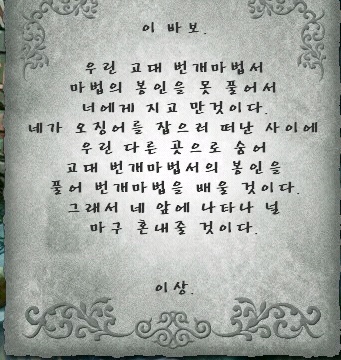 이 바보.
우린 고대 번개마법서
마법의 봉인을 못 풀어서
너에게 지고 만것이다.
네가 오징어를 잡으러 떠난 사이에
우린 다른 곳으로 숨어
고대 번개마법서의 봉인을
풀어 번개마법을 배울 것이다.
그래서 네 앞에 나타나 널
마구 혼내줄 것이다.
이상.